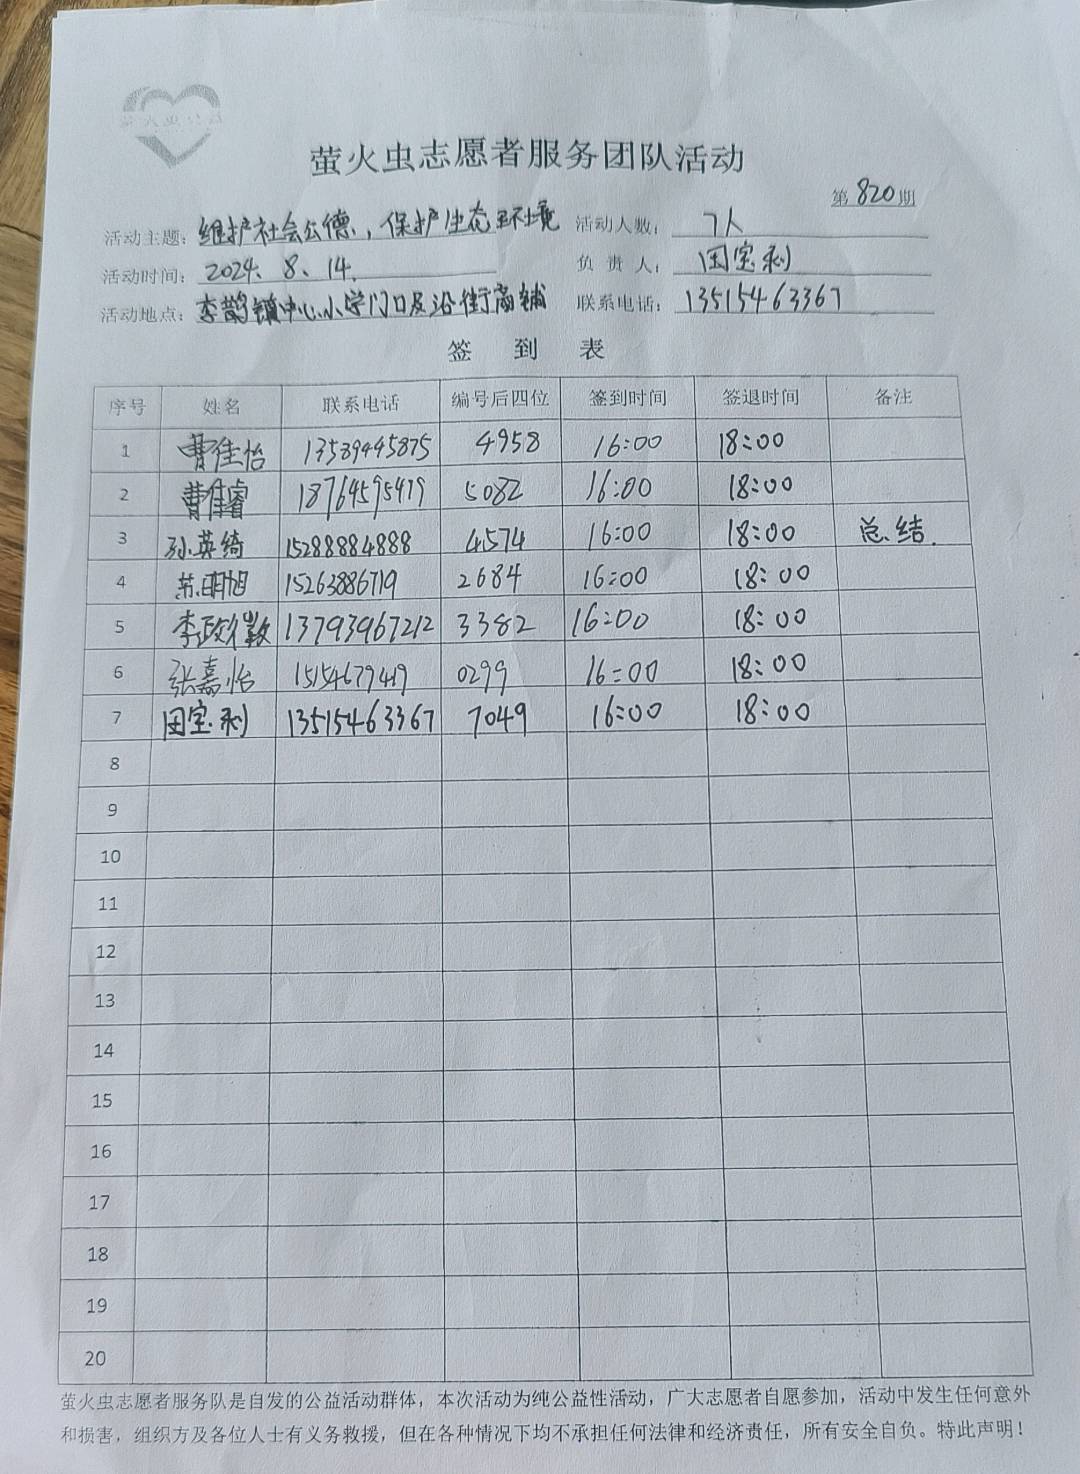 萤火虫公益
萤火虫志愿者服务团队活动
第820期
活动主题：维护社会公德，保护生态环境 活动人数：7人
活动时间：2024.8、14. 负责人：田宝利
活动地点：李鹊镇中心小学门口及沿街商铺 联系电话：13515463367
签到表
序号 姓名 联系电话 编号后四位 签到时间 签退时间 备注
1 曹佳怡 13589445875 4958 16:00 18:00
2 曹佳睿 18764595479 5082 16:00 18:00
3 孙英绮 15288884888 4574 16:00 18:00 总结.
4 苏明旭 15263886719 2684 16:00 18:00
5 李政徽 13793967212 3382 16:00 18:00
6 张嘉怡 15154679419 0299 16:00 18:00
7 田宝利 13515463367 7049 16:00 18:00
8
9
10
11
12
13
14
15
16
17
18
19
20
萤火虫志愿者服务队是自发的公益活动群体，本次活动为纯公益性活动，广大志愿者自愿参加，活动中发生任何意外
和损害，组织方及各位人士有义务救援，但在各种情况下均不承担任何法律和经济责任，所有安全自负。特此声明！